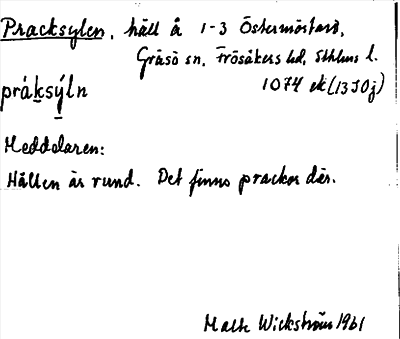 Pracksylen, häll å 1-3 Östermörtarö,
Gräsö sn, Frösåkers hd, Sthlms l.
prák̲sý̲ln 1074 ek (13J0j)
Meddelaren:
Hällen är rund. Det finns prackor där.
Malte Wickström 1961